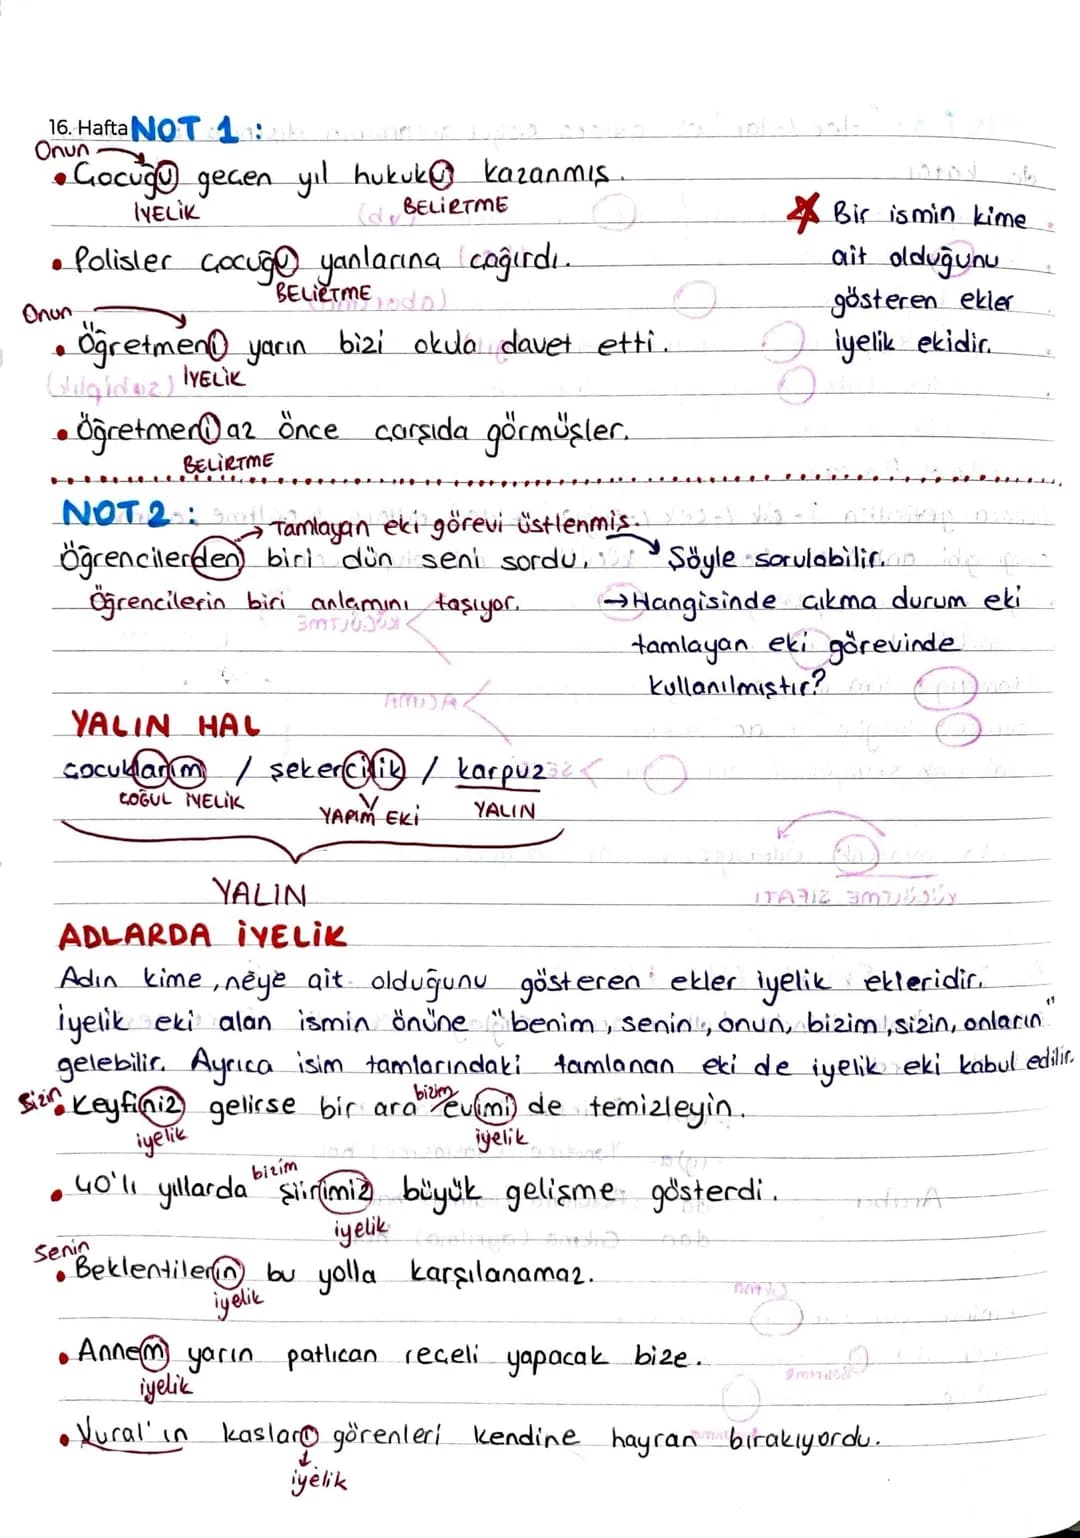 16. Hafta NOT 1 :
Onun
• Çocuğu geçen yıl hukuku kazanmış.
İYELİK BELİRTME
• Polisler çocuğu yanlarına çağırdı.
BELİRTME
Onun
• Öğretmeni yarın bizi okula davet etti.
İYELİK
• Öğretmeni az önce çarşıda görmüşler.
BELİRTME
Bir ismin kime
ait olduğunu
gösteren ekler
iyelik ekidir.
NOT 2 :
→ Tamlayan eki görevi üstlenmiş.
Öğrencilerden biri dün seni sordu.
Öğrencilerin biri anlamını taşıyor.
Şöyle sorulabilir.
→ Hangisinde çıkma durum eki
tamlayan eki görevinde
kullanılmıştır?
YALIN HAL
çocuklarım / şekercilik / karpuz
ÇOĞUL İYELİK YAPIM EKİ YALIN
YALIN
ADLARDA İYELİK
Adın kime, neye ait olduğunu gösteren ekler iyelik ekleridir.
İyelik eki alan ismin önüne "benim, senin, onun, bizim, sizin, onların"
gelebilir. Ayrıca isim tamlarındaki tamlanan eki de iyelik eki kabul edilir.
Sizin bizim
• Keyfiniz gelirse bir ara evimi de temizleyin.
iyelik iyelik
bizim
• 40'lı yıllarda şiirimiz büyük gelişme gösterdi.
iyelik
Senin
• Beklentilerin bu yolla karşılanamaz.
iyelik
• Annem yarın patlıcan reçeli yapacak bize.
iyelik
• Vural'ın kasları görenleri kendine hayran bırakıyordu.
iyelik